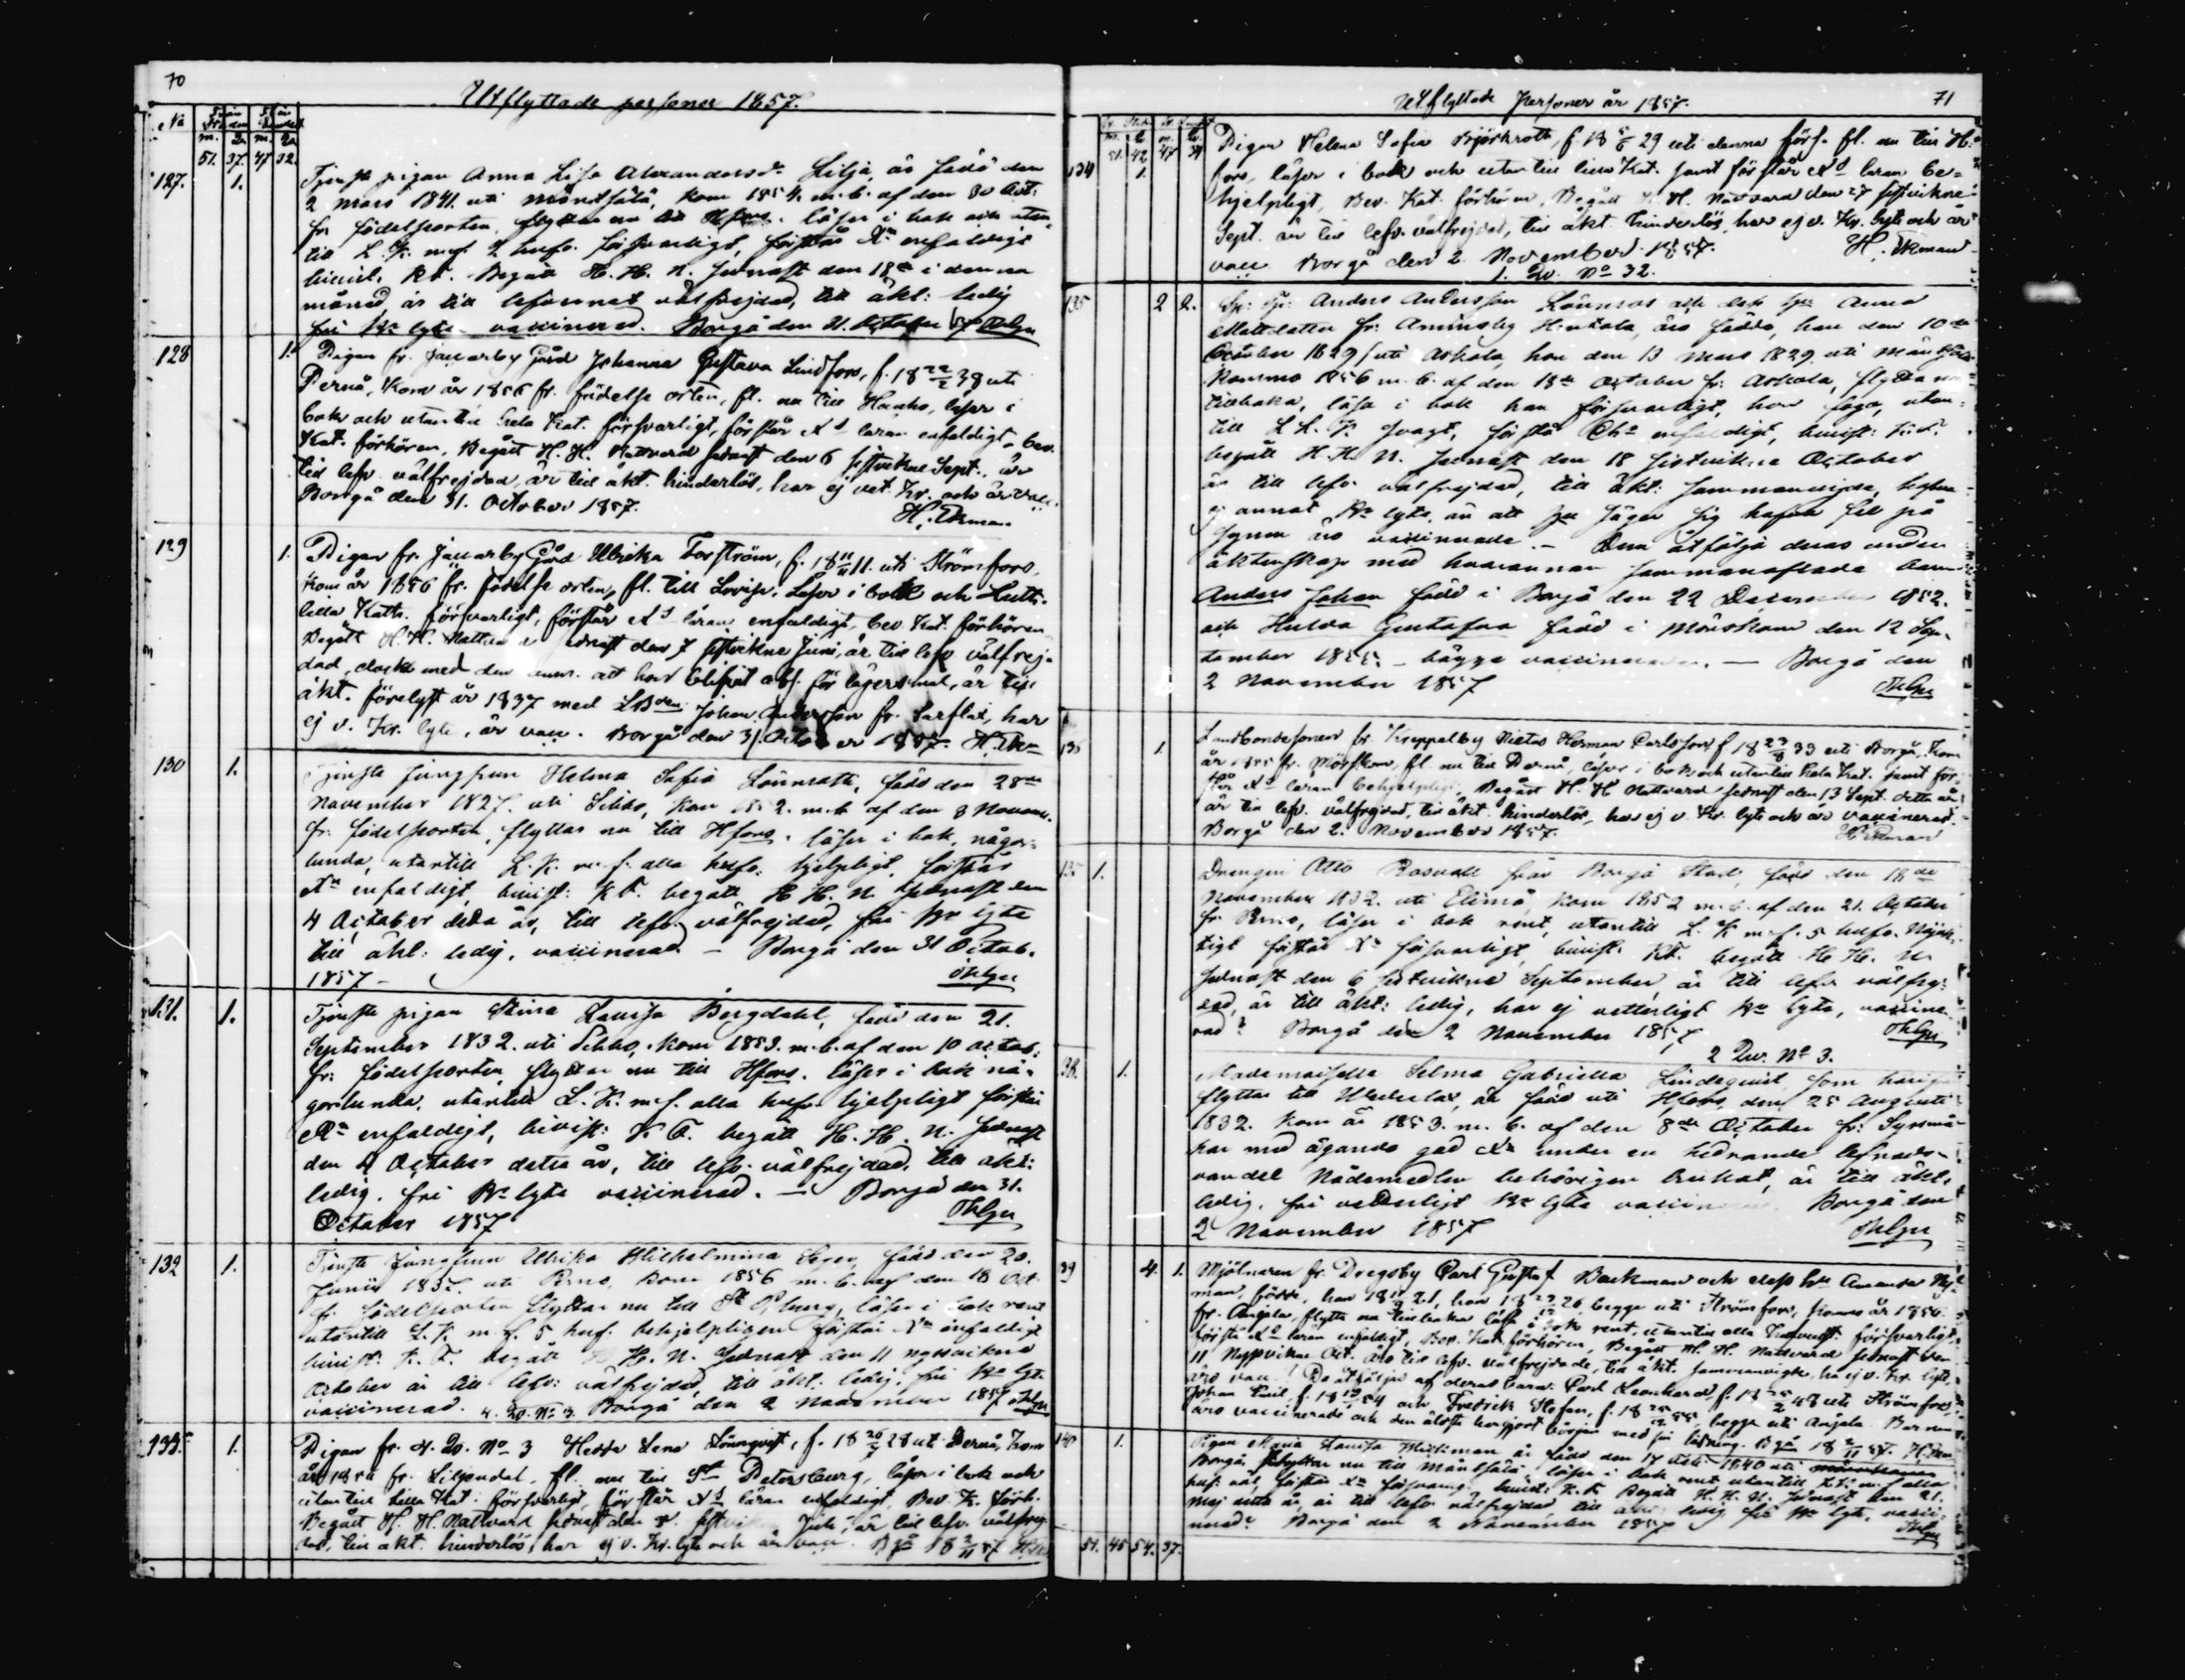 70
Utflyttade personer 1857.
No
m. m.
51. 37. 47 32.
127. 1. Tjenste pigan Anna Lisa Alexandersdr Lilja, är född den
2 Mars 1841. uti Mäntsälä, kom 1854. m. b. af den 30 Oct.
fr. födelseorten, flyttar nu till Hfors. läser i bok och utan
till L. K. m. f. 2 hufs. försvarligt, förstår Xn enfaldigt
bevist. K. F. Begått H. H. N. sednast den 18de i denna
månad, är till lefvernet välfrejdad, till äkt: ledig
fri Kr lyte vaccinerad. Borgå den 31. October 57
128 1. Pigan fr. Jackarby Gård Johanna Gustava Lindfors, f. 18 22/2 38 uti
Pernå, kom år 1856 fr. födelse orten, fl. nu till Hauho, läser i
bok och utantill hela Kat. försvarligt, förstår Xd läran enfaldigt, bev.
Kat. förhören, Begått H. H. Nattvard sednast den 6 sistvikne Sept., är
till lefv. välfrejdad, är till äkt. hinderlös, har ej vet. Kr. och är vacc.
Borgå den 31. October 1857.
H. Ekman
129 1. Pigan fr. Jackarby Gård Ulrika Forsström, f. 18 11 uti Strömfors,
kom år 1856 fr. födelse orten, fl. till Lovisa. Läser i bok och Luth.
lilla Kath. försvarligt, förstår Xd läran enfaldigt, bev. Kat. förhören
Begått H. H. Nattvard sednast den 7 sistvikne Juni, är till lefv välfrej-
dad, dock med den anm. att hon blifvit abs. för lägersmål, är till
äkt. förelyst år 1837 med LBden Johan Andersson fr. Sarflax, har
ej v. Kr. lyte, är vacc. Borgå den 31 October 1857.
130 1. Tjenste jungfrun Helena Sofia Lönnroth, född den 28de
November 1827. uti Sibbo, kom 1852. m. b. af den 8 Novem.
fr. födelseorten, flyttar nu till Hfors. läser i bok, någor-
lunda, utantill L. K. m. f. alla hufs. hjelpligt, förstår
Xn enfaldigt, bevist: K. F. begått H. H. N. sednast den
4 October detta år, till lefv. välfrejdad, fri Kr lyte
till äkt: ledig, vaccinerad. — Borgå den 31 Octob.
1857 —
131. 1. Tjenste pigan Stina Lovisa Bergdahl, född den 21.
September 1832. uti Sibbo, kom 1853. m. b. af den 10 Octob.
fr. födelseorten, flyttar nu till Hfors. läser i bok nå-
gorlunda, utantill L. K. m. f. alla hufs. hjelpligt förstår
Xn enfaldigt, bevist: K. F. begått H. H. N. sednast
den 4 October detta år, till lefv. välfrejdad, till äkt:
ledig, fri Kr lyte vaccinerad. — Borgå den 31.
October 1857
132 1. Tjenste jungfrun Ulrika Wilhelmina född den 20.
Junii 1837. uti Perno, kom 1856 m. b. af den 18 Oct.
fr. födelseorten flyttar nu till St Pburg, läser i bok rent
utantill L. K. m. f. 5 huf. behjelpligen förstår Xn enfaldigt
bevist: K. F. begått H. H. N. sednast den 11 nyssvikne
October är till lefv: välfrejdad, till äkt: ledig, fri Kr lyte
vaccinerad. Borgå den 2 November 1857
133 1. Pigan fr. 4. Qv. No 3 Hedda Lena Lönnqvist, f. 18 26/7 28 uti Pernå, kom
år fr. Liljendal, fl. nu till St Petersburg, läser i bok och
utantill Lilla Kat. försvarligt, förstår Xd läran enfaldigt, Bev. K. förh.
Begått H. H. Nattvard sednast den sistvikne Juli, är till lefv. välfrej
dad, till äkt. hinderlös, har ej v. Kr. lyte och är vacc. Bgå 18 2/11 57
Utflyttade Personer år 1857.
71
134 1. Pigan Helena Sofia Björkroth, f. 18 29 uti denna förs. fl. nu till H:
fors, läser i bok och utantill lilla Kat. samt förstår Xd läran be-
hjelpligt, Bev. Kat. förhören, Begått H. H. Nattvard den 27 sistvikne
Sept. är till lefv. välfrejdad, till äkt. hinderlös, har ej v. Kr. lyte och är
vacc. Borgå den 2 November 1857. H. Ekman
1. Qv. No 32.
135 2 2. Anders Andersson Lönnroos och dess hu Anna
Mattsdotter fr. Aminsby Hintala, äro födde, han den 10de
October 1829 uti Askola, hon den 13 Mars 1829, uti Mäntsälä
kommo 1856 m. b. af den 18de October fr. Askola, flytta nu
tillbaka, läsa i bok han försvarligt, hon svagt, utan-
till L. K. svagt, förstå Chn enfaldigt, bevist: K. F.
begått H. H. N. sednast den 18 sistvikne October
är till lefv. välfrejdad, till äkt: sammanvigde, hafva
ej annat Kr lyte, än att hu säger sig hafva fel på
synen äro vaccinerade. — Dem åtfölja deras under
äktenskap med hvarannan sammanaflade barn
Anders Johan född i Borgå den 22 December 1852.
och Hulda Gustafva född i Mörskom den 12 Sep-
tember 1855. — bägge vaccinerade. — Borgå den
2 November 1857
136 1. Landbondesonen fr. Kreppelby Viktor Herman Carlsson f 18 23/8 33 uti Borgå, kom
år 1855 fr. Mörskom, fl. nu till Pernå, läser i bok och utantill hela Kat. samt för-
står Xd läran behjelpligt, Begått H. H. Nattvard sednast den 13 Sept. detta år
är till lefv. välfrejdad, till äkt. hinderlös, har ej v. Kr. lyte och är vaccinerad.
Borgå den 2. November 1857. H. Ekman
1. Drengen Otto Rosvall från Borgå Stad, född den 18de
November 1832. uti Elimä, kom 1852 m. b. af den 21. October
fr. Perno, läser i bok rent, utantill L. K. m. f. 5 hufs. nöjak-
tigt förstår Xn försvarligt, bevist. K. F. begått H. H. N.
sednast den 6 sistvikne September är till lefv. välfrej-
dad, är till äkt: ledig, har ej vetterligt Kr lyte, vaccine
rad. Borgå den 2 November 1857
2 Qv. No 3.
38. 1. Mademoiselle Selma Gabriella Lindeqvist, som
flyttar till Wederlax, är född uti Hfors, den 25 Augusti
1832. kom år 1853. m. b. af den 8de October fr. Sysmä
har med ägande god Xn under en hedrande lefnads-
vandel Nådemedlen behörigen brukat, är till äkt.
ledig, fri vetterligt Kr lyte Borgå den
2 November 1857
39 4. 1. Mjölnaren fr. Dregsby Carl Gustaf Backman och dess hu Amanda Ny-
man, födde, han 18 21, hon 18 26, begge uti Strömfors,
fr. Anjala, flytta nu tillbaka läsa i bok rent, utantill alla försvarligt,
förstå Xd läran enfaldigt, Bev. Kat. förhören, Begått H. H. Nattvard sednast den
11 Nyssvikne Oct. äro till lefv. välfrejdade, till äkt. sammanvigde, ha ej v. Kr. lyte,
äro vacc. De åtföljas af deras barn: Carl Leonhard f. 18 48 uti Strömfors
Johan Emil, f. 18 54 och Fredrik Stefan, f. 18 55, begge uti Anjala. Barnen
äro vaccinerade och den äldste har gjort början med sin läsning. Bgå 18 2/11 57.
140 1. Pigan Maria Lovisa är född den 17 1840 uti
Borgå, flyttar nu till Mäntsälä läser i bok rent utantill L. K. m. f. alla
huf. väl, förstår Xn försvarligt bevist: K. F. Begått H. H. N. sednast den 21.
Maj detta år, är till lefv. välfrejdad till äkt: ledig fri Kr lyte, vacci-
nerad. Borgå den 2 November 1857
51. 45 54. 37.